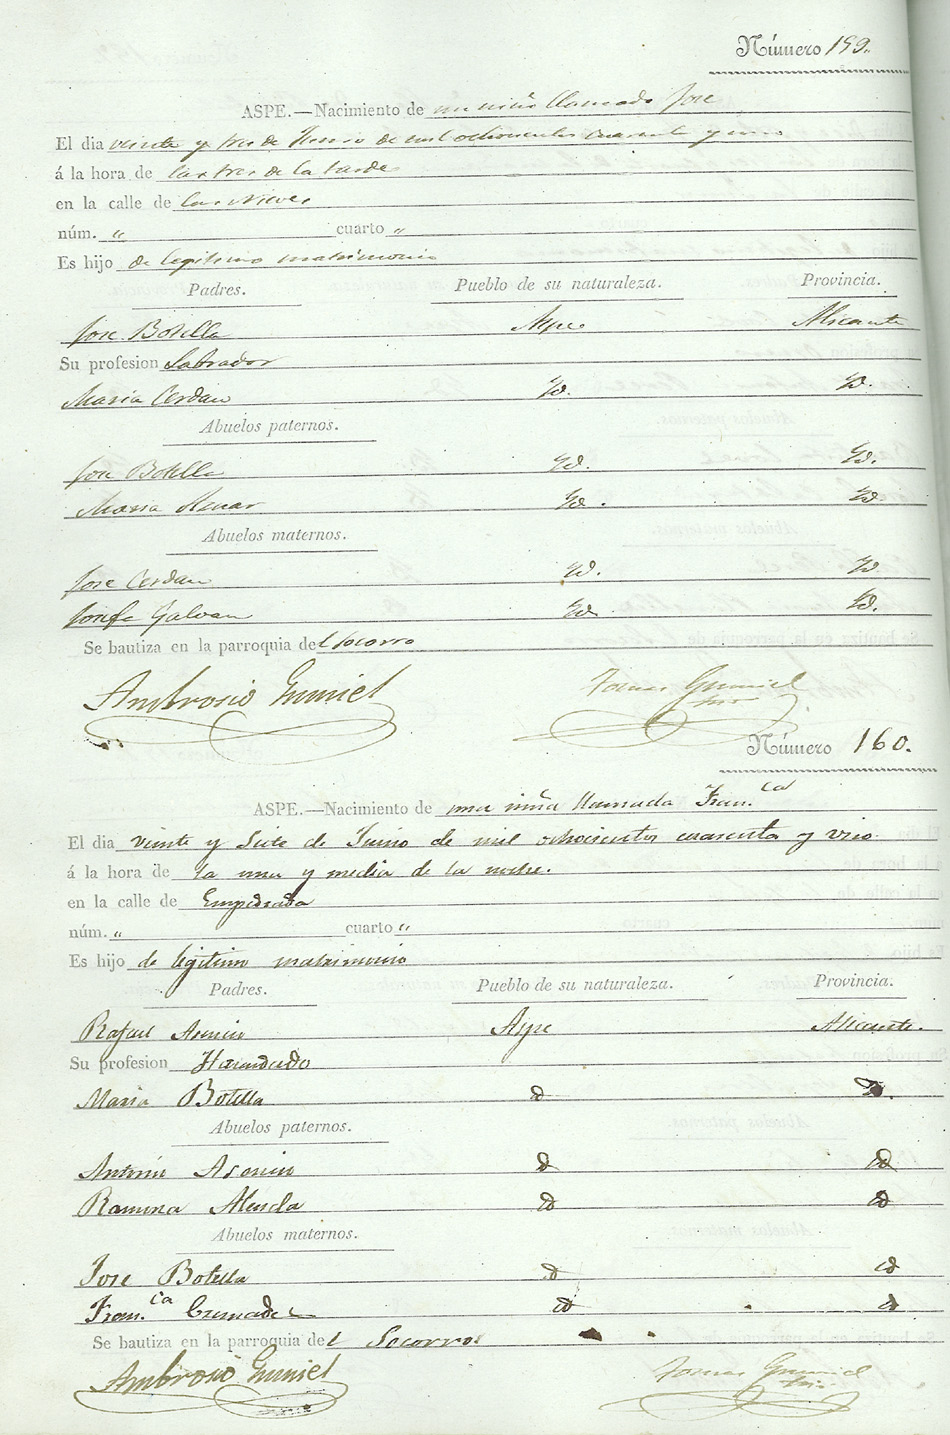 Número 159.
ASPE.—Nacimiento de un niño llamado Jose
El dia veinte y tres de Junio de mil ochocientos cuarenta y uno
á la hora de las tres de la tarde
en la calle de las Nieves
núm. " cuarto "
Es hijo de legitimo matrimonio
Padres. Pueblo de su naturaleza. Provincia.
Jose Botella Aspe Alicante
Su profesion Labrador
Maria Cerdan Yd. Yd.
Abuelos paternos.
Jose Botella Yd. Yd.
Maria Yd. Yd.
Abuelos maternos.
Jose Cerdan Yd. Yd
Josefa Galvan Yd. Yd.
Se bautiza en la parroquia del Socorro
Ambrosio Gumiel Tomas Gumiel
Número 160.
ASPE.—Nacimiento de una niña llamada Fran.ca
El dia veinte y siete de Junio de mil ochocientos cuarenta y uno
á la hora de la una y media de la noche.
en la calle de Empedrada
núm. " cuarto "
Es hijo de legitimo matrimonio
Padres. Pueblo de su naturaleza. Provincia.
Rafael Asencio Aspe Alicante.
Su profesion Hacendado
Maria Botella id id.
Abuelos paternos.
Antonio Asencio id id
Ramona Alenda id id
Abuelos maternos.
Jose Botella id id
Fran.ca id id
Se bautiza en la parroquia del Socorro.
Ambrosio Gumiel Tomas Gumiel